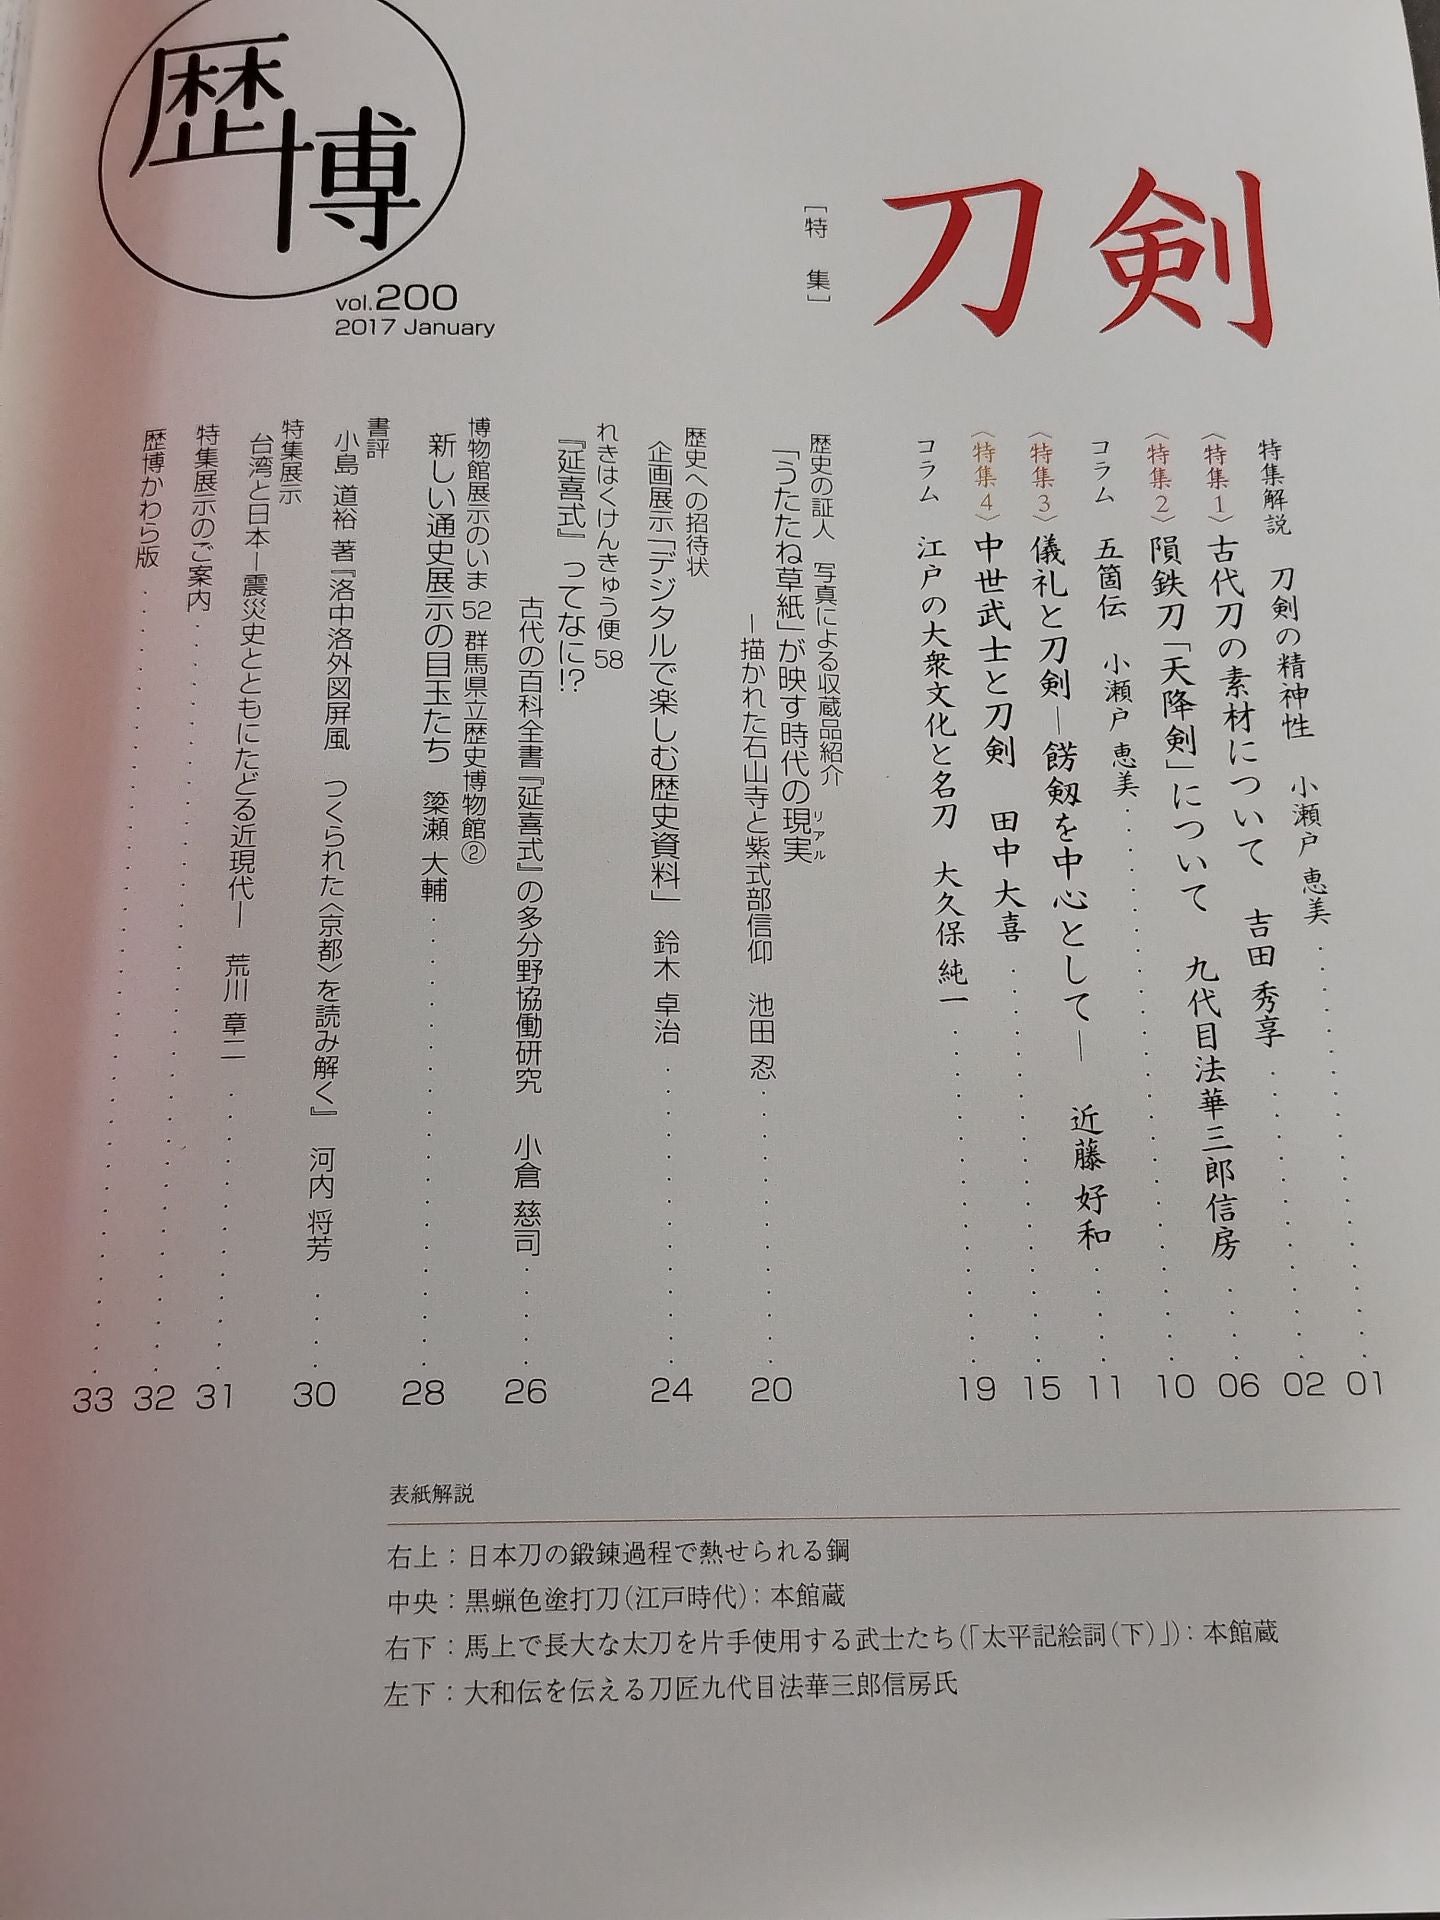 歴博
vol.200
2017 January
刀剣
［特集］
特集解説 刀剣の精神性 小瀬戸 恵美 01
〈特集1〉古代刀の素材について 吉田 秀享 02
〈特集2〉隕鉄刀「天降剣」について 九代目法華三郎信房 06
コラム 五箇伝 小瀬戸 恵美 10
〈特集3〉儀礼と刀剣―餝剱を中心として― 近藤 好和 11
〈特集4〉中世武士と刀剣 田中 大喜 15
コラム 江戸の大衆文化と名刀 大久保 純一 19
歴史の証人 写真による収蔵品紹介
「うたたね草紙」が映す時代の現実 リアル
―描かれた石山寺と紫式部信仰 池田 忍 20
歴史への招待状
企画展示「デジタルで楽しむ歴史資料」 鈴木 卓治 24
れきはくけんきゅう便 58
『延喜式』ってなに!?
古代の百科全書『延喜式』の多分野協働研究 小倉 慈司 26
博物館展示のいま 52 群馬県立歴史博物館②
新しい通史展示の目玉たち 簗瀬 大輔 28
書評
小島 道裕 著『洛中洛外図屏風 つくられた〈京都〉を読み解く』 河内 将芳 30
特集展示
台湾と日本―震災史とともにたどる近現代― 荒川 章二 31
特集展示のご案内 32
歴博かわら版 33
表紙解説
右上：日本刀の鍛錬過程で熱せられる鋼
中央：黒蝋色塗打刀（江戸時代）：本館蔵
右下：馬上で長大な太刀を片手使用する武士たち（「太平記絵詞（下）」）：本館蔵
左下：大和伝を伝える刀匠九代目法華三郎信房氏